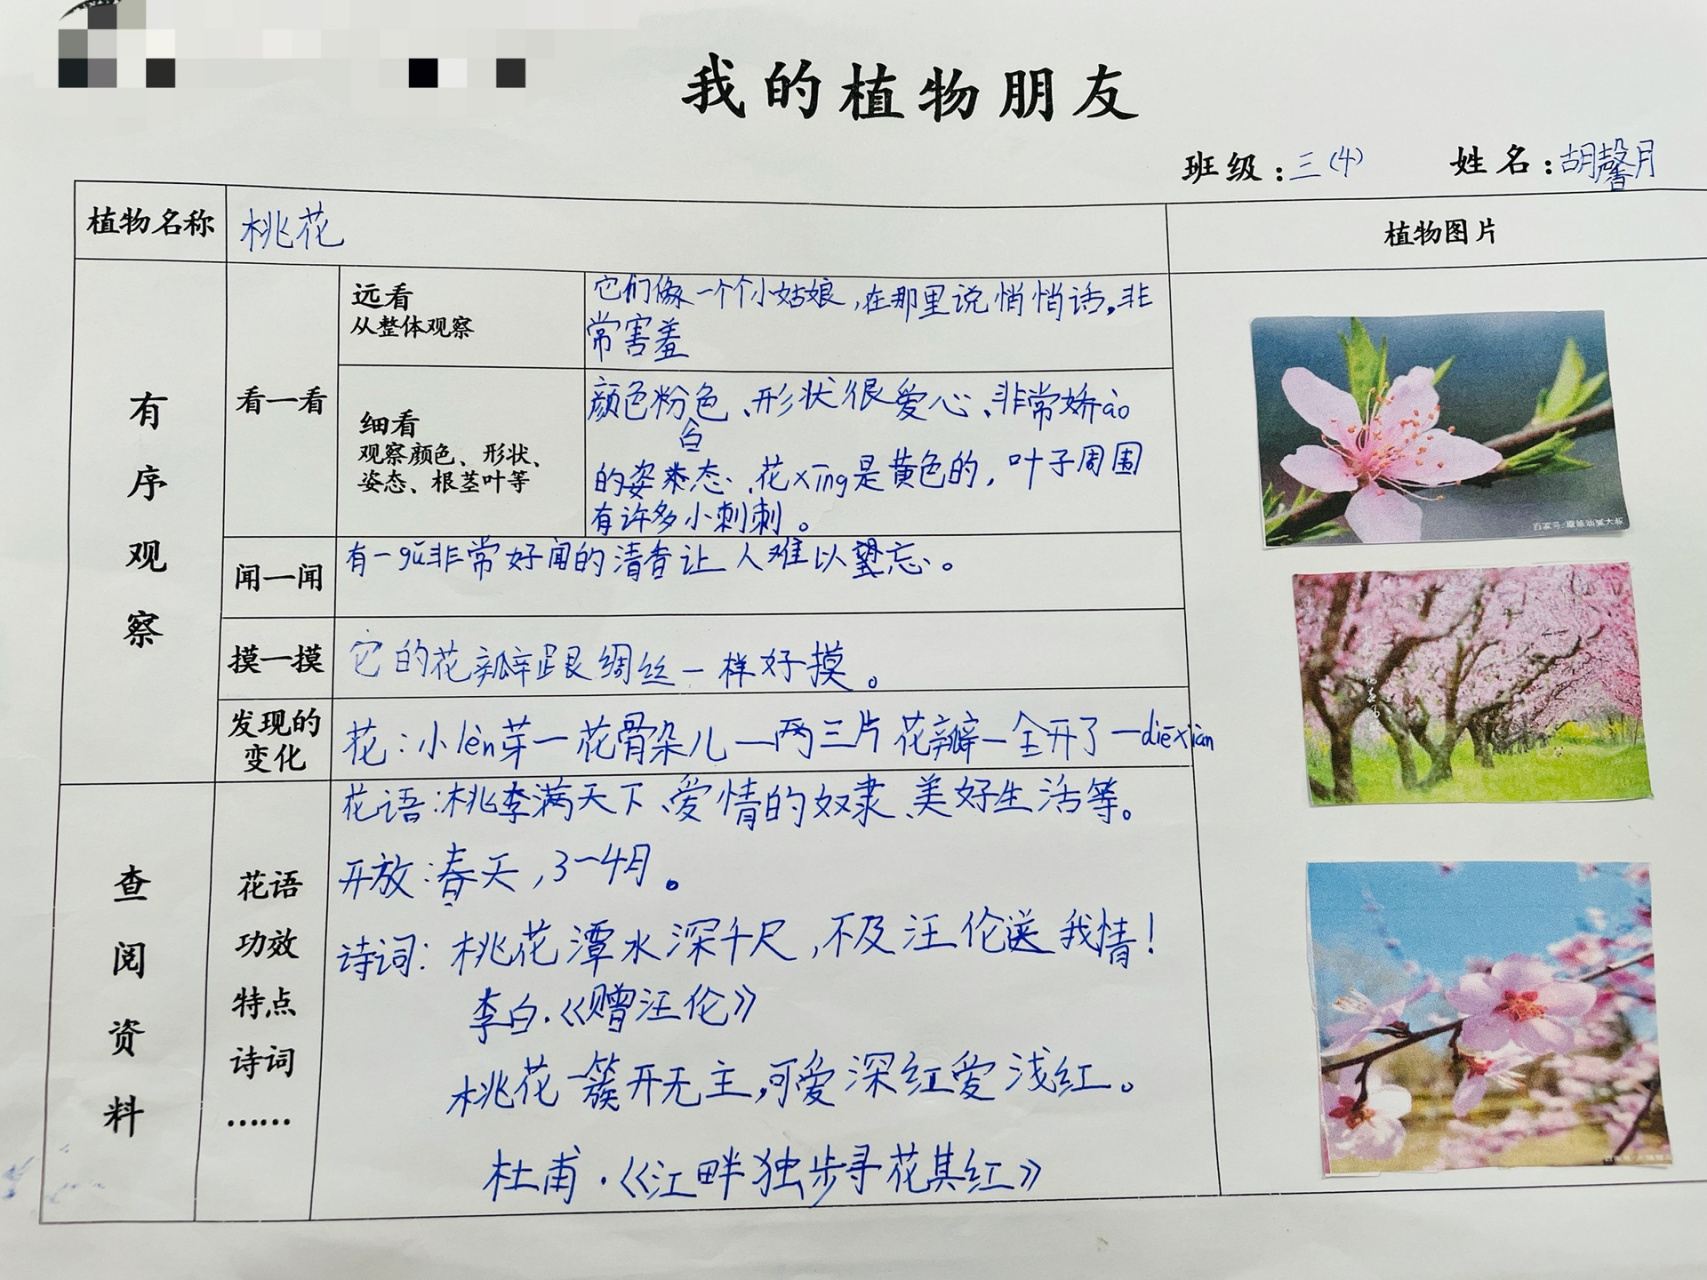 我的植物朋友
班级：三(4) 姓名：胡馨月
植物名称
桃花
植物图片
有序观察
看一看
远看
从整体观察
它们像一个个小姑娘，在那里说悄悄话。非
常害羞
细看
观察颜色、形状、
姿态、根茎叶等
颜色粉色、形状很爱心、非常娇ào
白
的姿态、花xīng是黄色的，叶子周围
有许多小刺刺。
闻一闻
有一gǔ非常好闻的清香让人难以忘。
摸一摸
它的花瓣跟绸丝一样好摸。
发现的
变化
花：小lèn芽—花骨朵儿—两三片花瓣—全开了—diēxiàn
查阅资料
花语
功效
特点
诗词
……
花语：桃李满天下、爱情的奴隶、美好生活等。
开放：春天，3~4月。
诗词：桃花潭水深千尺，不及汪伦送我情！
李白·《赠汪伦》
桃花一簇开无主，可爱深红爱浅红。
杜甫·《江畔独步寻花其红》